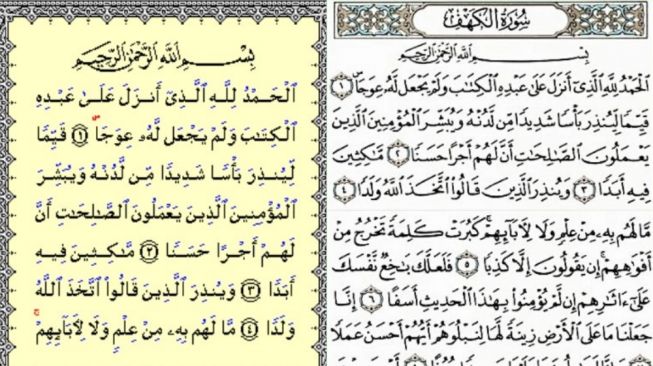 بِسْمِ ٱللَّهِ ٱلرَّحْمَٰنِ ٱلرَّحِيمِ
ٱلْحَمْدُ لِلَّهِ ٱلَّذِىٓ أَنزَلَ عَلَىٰ عَبْدِهِ
ٱلْكِتَٰبَ وَلَمْ يَجْعَل لَّهُۥ عِوَجَاۜ ١ قَيِّمًا
لِّيُنذِرَ بَأْسًا شَدِيدًا مِّن لَّدُنْهُ وَيُبَشِّرَ
ٱلْمُؤْمِنِينَ ٱلَّذِينَ يَعْمَلُونَ ٱلصَّٰلِحَٰتِ أَنَّ
لَهُمْ أَجْرًا حَسَنًا ٢ مَّٰكِثِينَ فِيهِ
أَبَدًا ٣ وَيُنذِرَ ٱلَّذِينَ قَالُوا۟ ٱتَّخَذَ ٱللَّهُ
وَلَدًا ٤ مَّا لَهُم بِهِۦ مِنْ عِلْمٍ وَلَا لِءَابَآئِهِمْ
سُورَةُ الكَهْفِ
بِسْمِ ٱللَّهِ ٱلرَّحْمَٰنِ ٱلرَّحِيمِ
ٱلْحَمْدُ لِلَّهِ ٱلَّذِىٓ أَنزَلَ عَلَىٰ عَبْدِهِ ٱلْكِتَٰبَ وَلَمْ يَجْعَل لَّهُۥ عِوَجَاۜ ١
قَيِّمًا لِّيُنذِرَ بَأْسًا شَدِيدًا مِّن لَّدُنْهُ وَيُبَشِّرَ ٱلْمُؤْمِنِينَ ٱلَّذِينَ
يَعْمَلُونَ ٱلصَّٰلِحَٰتِ أَنَّ لَهُمْ أَجْرًا حَسَنًا ٢ مَّٰكِثِينَ
فِيهِ أَبَدًا ٣ وَيُنذِرَ ٱلَّذِينَ قَالُوا۟ ٱتَّخَذَ ٱللَّهُ وَلَدًا ٤
مَّا لَهُم بِهِۦ مِنْ عِلْمٍ وَلَا لِءَابَآئِهِمْ كَبُرَتْ كَلِمَةً تَخْرُجُ مِنْ
أَفْوَٰهِهِمْ إِن يَقُولُونَ إِلَّا كَذِبًا ٥ فَلَعَلَّكَ بَٰخِعٌ نَّفْسَكَ
عَلَىٰٓ ءَاثَٰرِهِمْ إِن لَّمْ يُؤْمِنُوا۟ بِهَٰذَا ٱلْحَدِيثِ أَسَفًا ٦ إِنَّا
جَعَلْنَا مَا عَلَى ٱلْأَرْضِ زِينَةً لَّهَا لِنَبْلُوَهُمْ أَيُّهُمْ أَحْسَنُ عَمَلًا